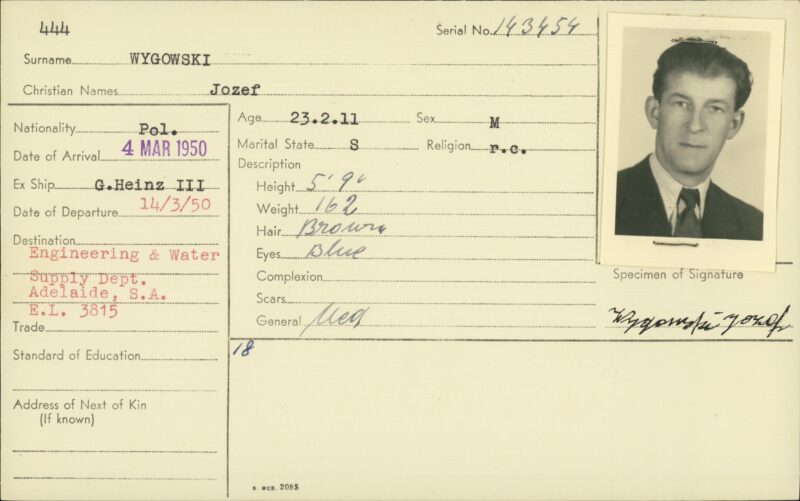 444
Serial No. 143454
Surname WYGOWSKI
Christian Names Jozef
Nationality Pol.
Date of Arrival 4 MAR 1950
Ex Ship G.Heinz III
Date of Departure 14/3/50
Destination
Engineering & Water
Supply Dept.
Adelaide, S.A.
E.L. 3815
Trade
Standard of Education
Address of Next of Kin
(If known)
Age 23.2.11 Sex M
Marital State S Religion r.c.
Description
Height 5'9"
Weight 162
Hair Brown
Eyes Blue
Complexion
Scars
General Med
18
Specimen of Signature
Wygowski Jozef
S. MCD. 2085